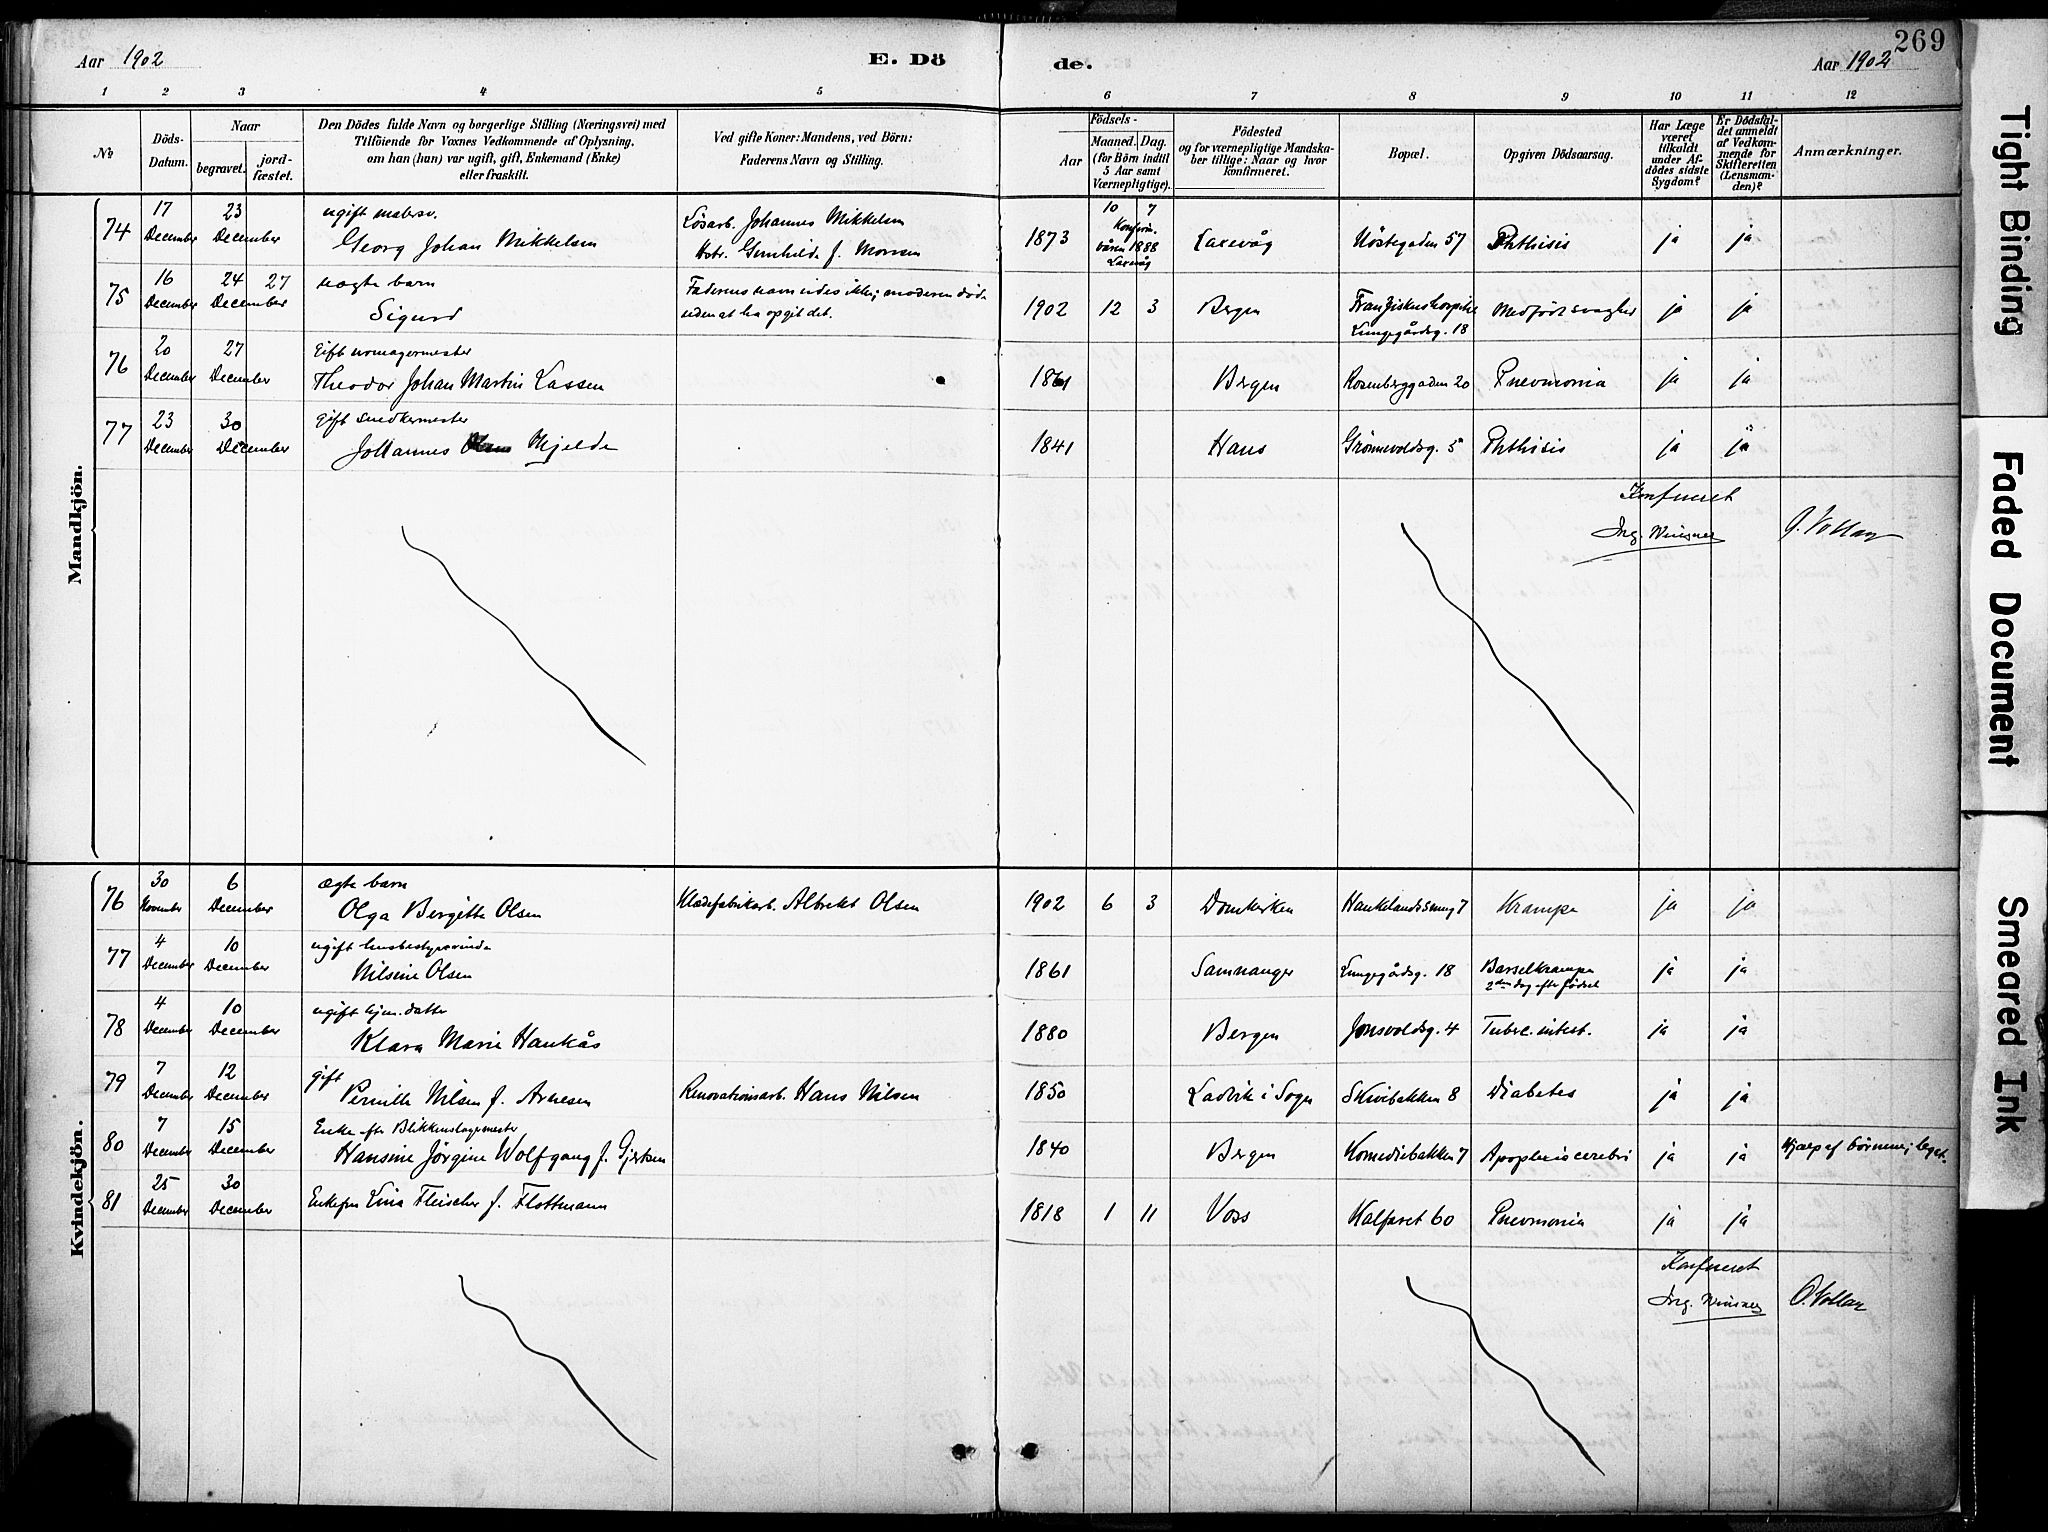 269
Aar 1902 E. Dö de. Aar 1902
1 2 3 4 5 6 7 8 9 10 11 12
№
Döds-Datum.
Naar
begravet.
jordfæstet.
Den Dödes fulde Navn og borgerlige Stilling (Næringsvei) med
Tilföiende for Voxnes Vedkommende af Oplysning,
om han (hun) var ugift, gift, Enkemand (Enke)
eller fraskilt.
Ved gifte Koner: Mandens, ved Börn:
Faderens Navn og Stilling.
Födsels-
Aar
Maaned. Dag.
(for Börn indtil
5 Aar samt
Værnepligtige).
Födested
og for værnepligtige Mandskaber
tillige: Naar og hvor
konfirmeret.
Bopæl.
Opgiven Dödsaarsag.
Har Læge
været
tilkaldt
under Afdödes
sidste
Sygdom?
Er Dödsfaldet
anmeldt
af Vedkommende
for
Skifteretten
(Lensmanden)?
Anmærkninger.
Mandkjön.
74 17 December 23 December ugift
Georg Johan Mikkelsen
Løsarb. Johannes Mikkelsen
1873 10 7 1888 Laxevåg
Laxevåg Nöstegaden 57 Phthisis ja ja
75 16 December 24 December 27 uægte barn
Sigurd
Faderens navn vides ikke; moderen døde
uden at ha opgit det.
1902 12 3 Bergen
Lungegårdsg. 18
ja ja
76 20 December 27 December Gift
Theodor Johan Martin Lassen
1861 Bergen Rosenberggaden 20 Pnevmonia ja ja
77 23 December 30 December gift snedkermester
Johannes Mjelde
1841 Haus Grønnevoldsg. 5 Phthisis ja ja
Konfereret
O. Vollan
Kvindekjön.
76 30 November 6 December ægte barn
Olga Bergitte Olsen
Klædefabrikarb. Albrekt Olsen
1902 6 3 Domkirken Haukelandssmug 7 Krampe ja ja
77 4 December 10 December ugift husbestyrerinde
Nilsine Olsen
1861 Samnanger Lungegårdsg. 18 Barselkrampe
2den dag efter fødsel
ja ja
78 4 December 10 December ugift hjem. datter
Klara Marie Haukås
1880 Bergen Jonsvoldsg. 4 Tuberc. intest. ja ja
79 7 December 12 December gift
Pernille Nilsen f. Arnesen
Renovationsarb. Hans Nilsen
1850 Ladvik i Sogn Skivebakken 8 Diabetes ja ja
80 7 December 15 December Enke efter Blikkenslagermester
Hansine Jørgine Wolfgang f. Gjertsen
1840 Bergen Komediebakken 7 Apoplexia cerebri ja ja
Hjælp af børnene;
81 25 December 30 December Enkefru Lina Fleischer f. Flottmann
1818 1 11 Voss Kalfaret 60 Pnevmonia ja ja
Konfereret
O. Vollan
Tight Binding
Faded Document
Smeared Ink